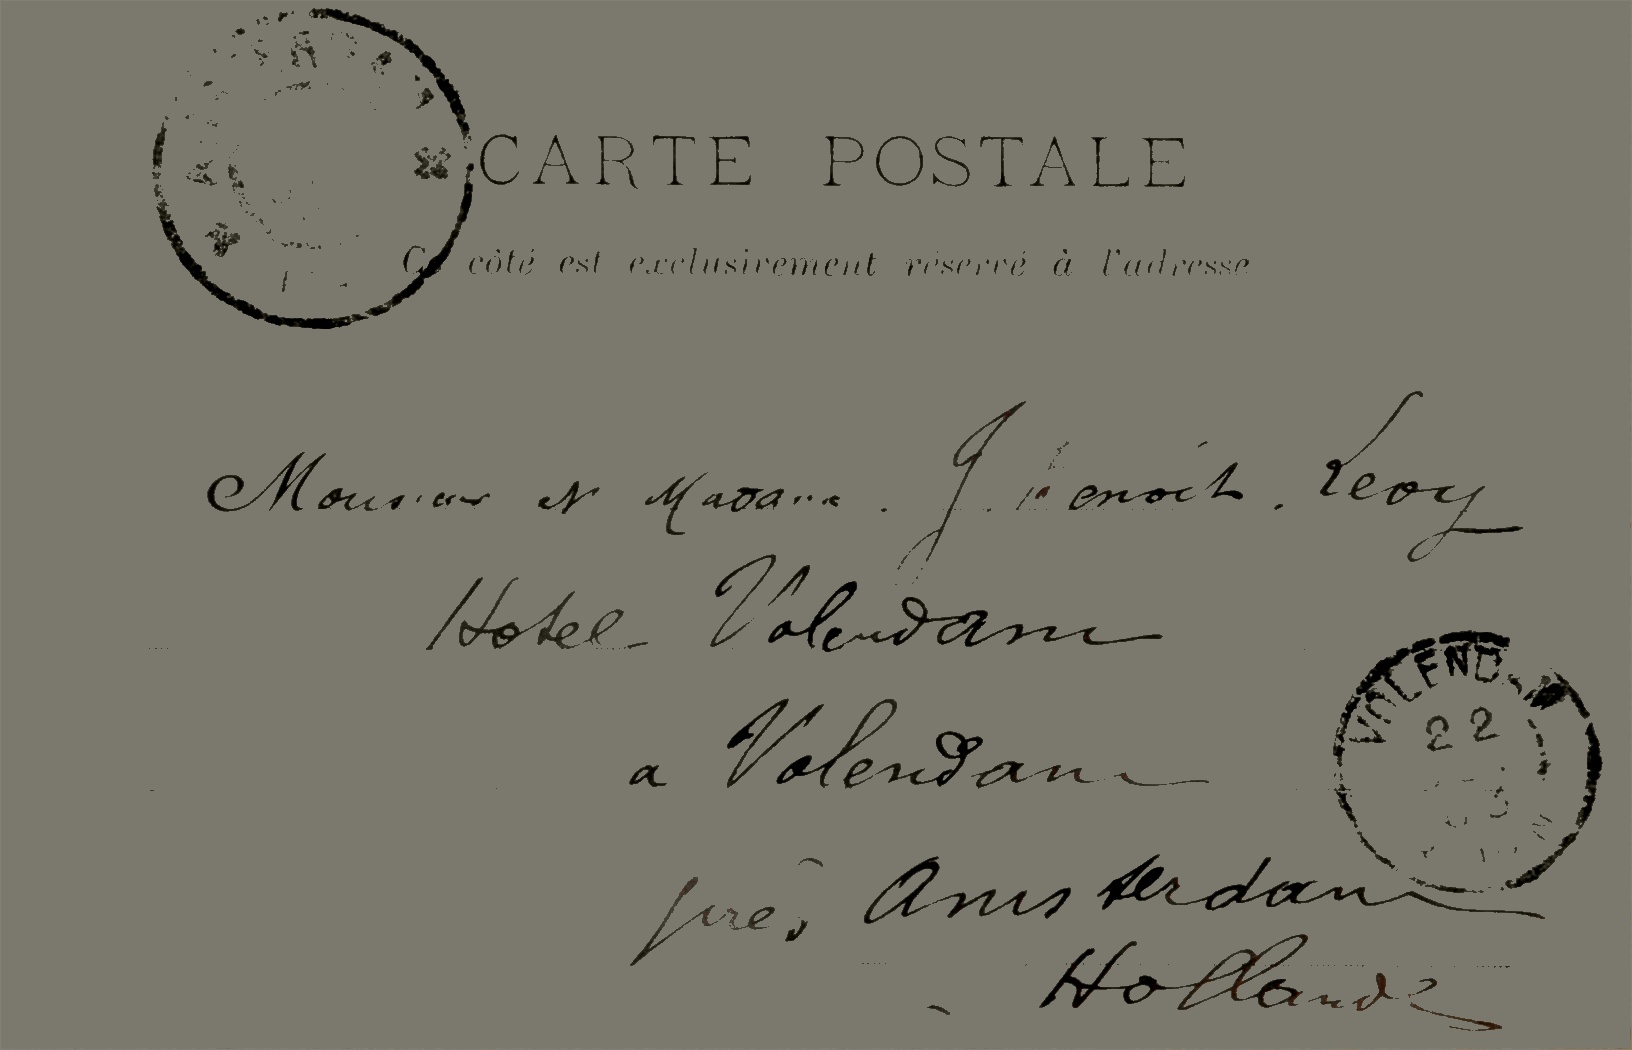 CARTE POSTALE
Ce côté est exclusivement réservé à l'adresse
Monsieur et Madame . J. Benoit . Levy
Hotel Volendam
VOLENDAM
22
a Volendam
près Amsterdam
Hollande